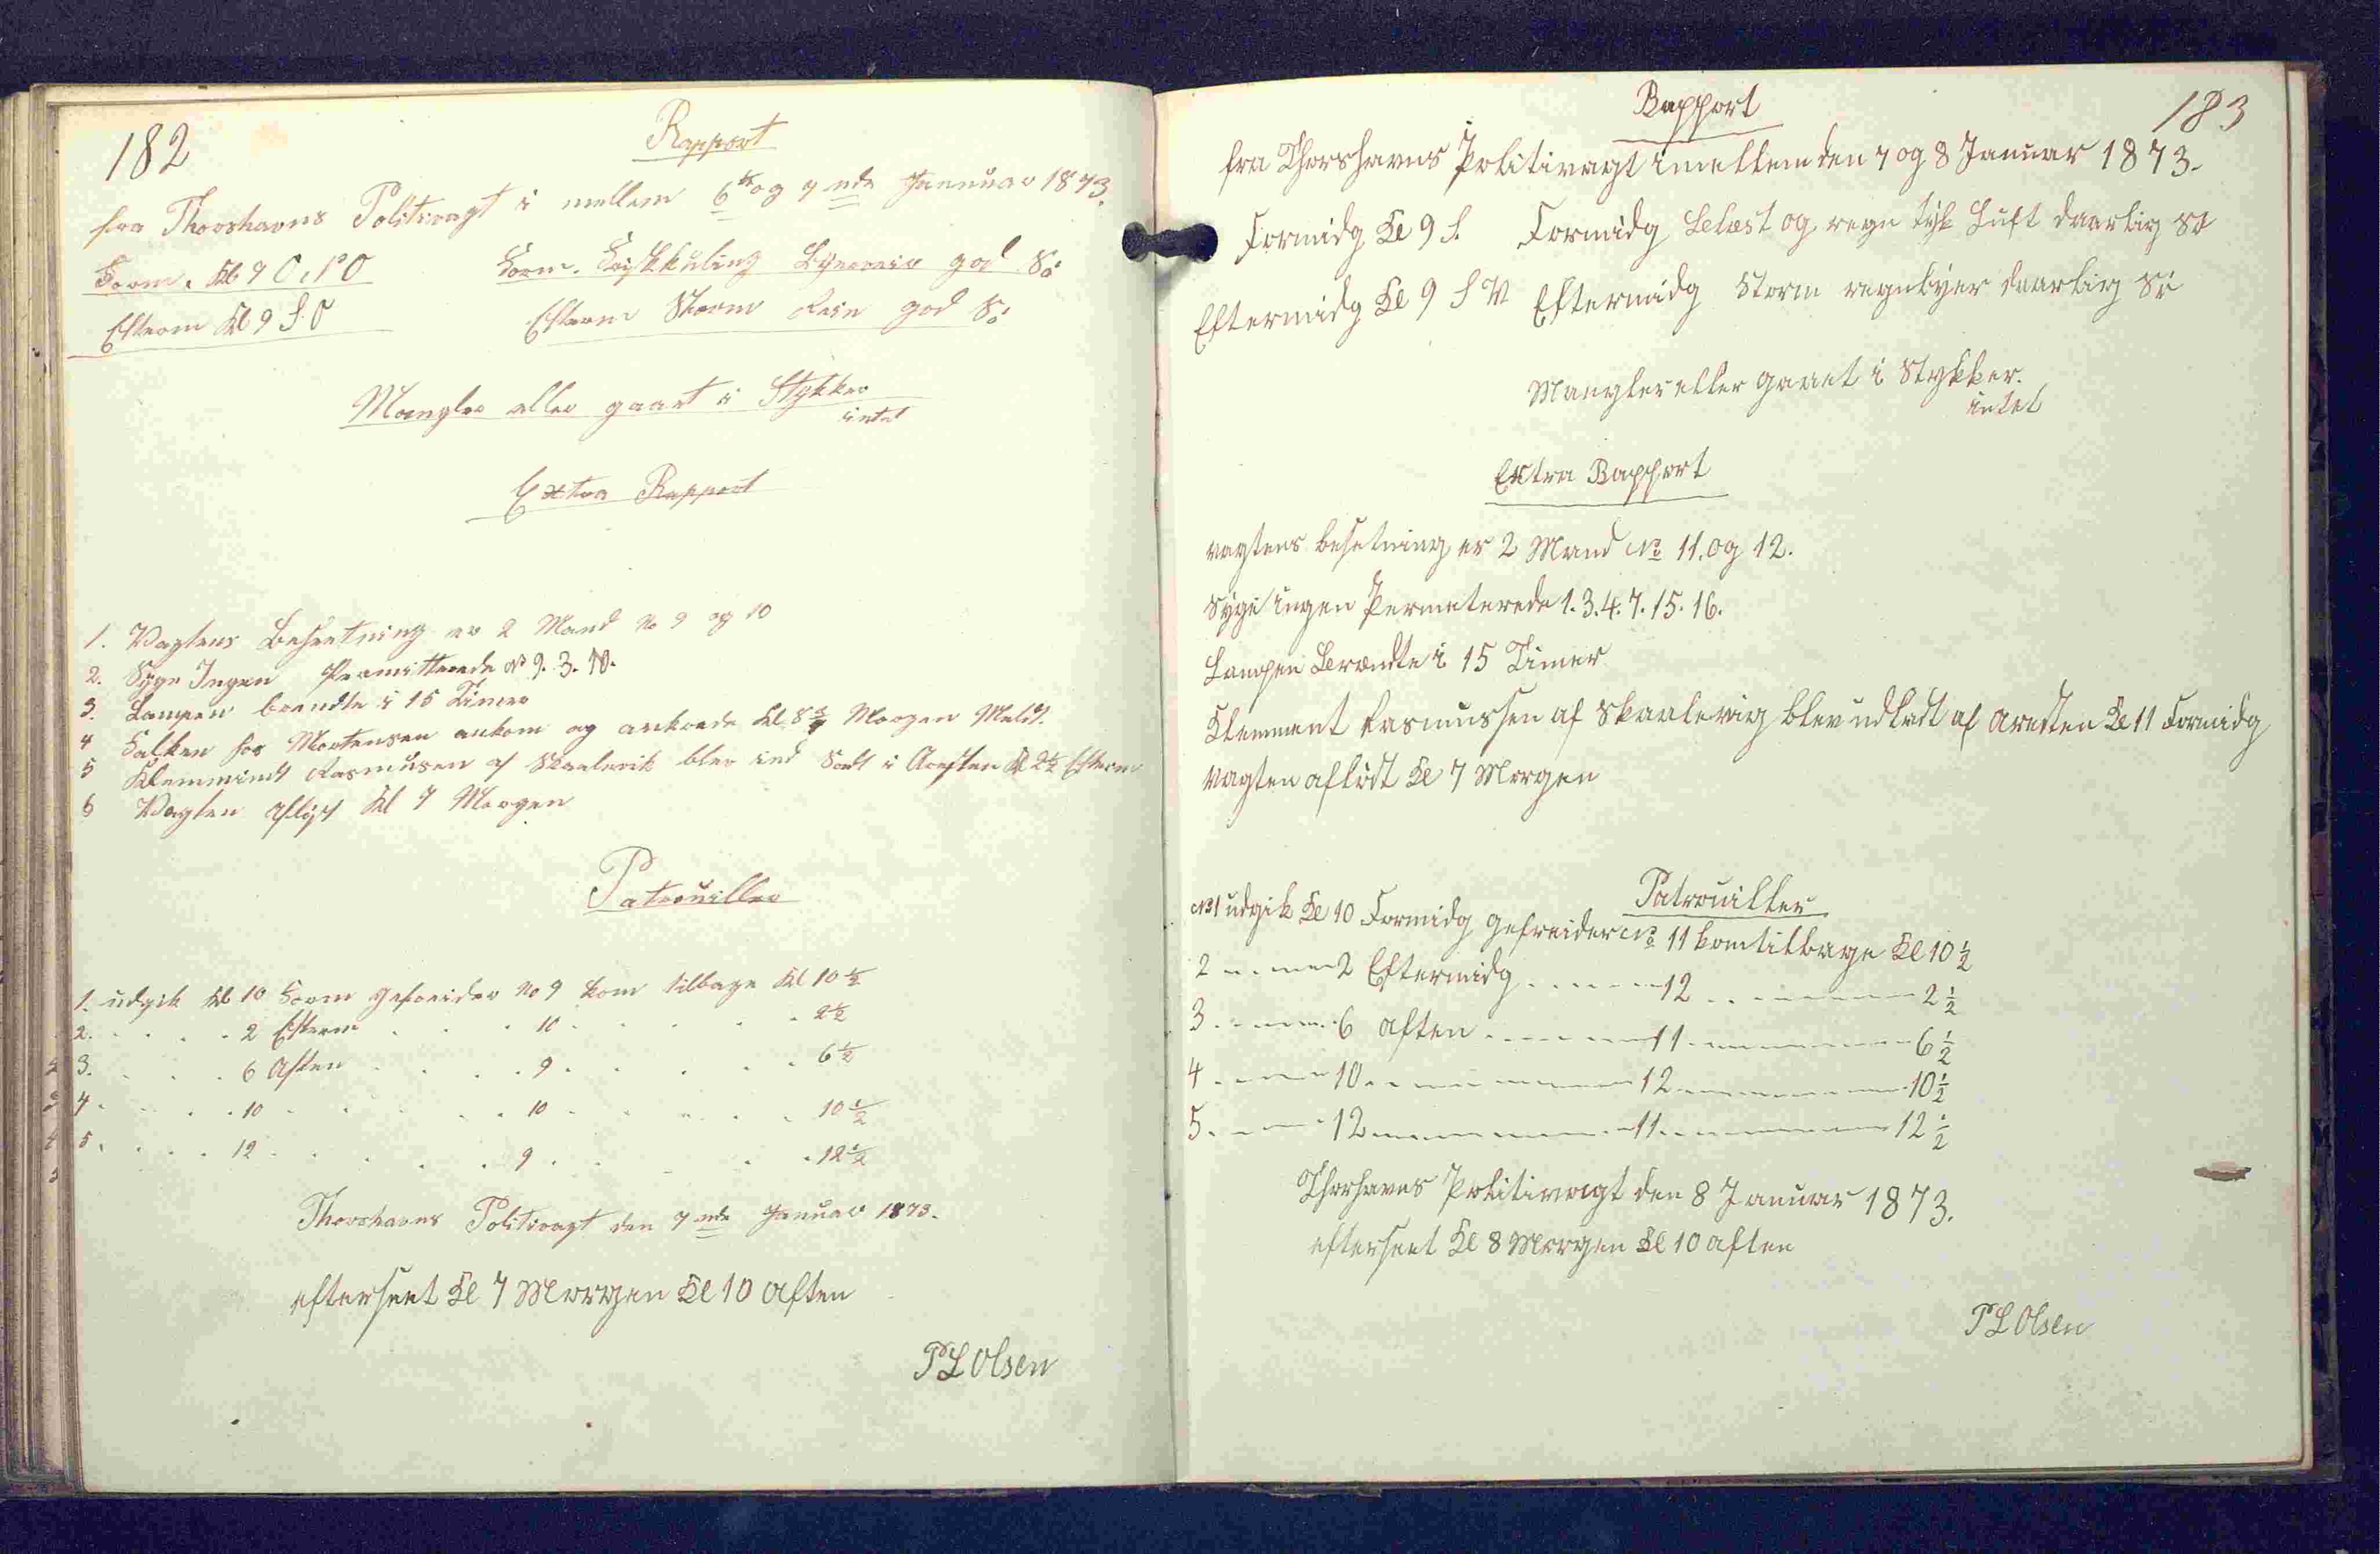 182
Rapport
fra Thorshavns Politivagt i mellem 6te og 7nde Januuar 1873.
Form. Kl 9 O.S.O Form. Friskkuling god Sö
Efterm Kl 9 S.O Efterm Storm Rein god Sö
Mangler eller gaaet i Stykker
intet
Extra Rapport
1. Vagtens Besætning er 2 Mand No 9 og 10
2. Syge Ingen Permitterede No 9. 3. 10.
3. Lampen brendte i 15 Timer
4 Falken för Mortensen ankom og ankrede Kl 8 3/4 Morgen
5 Klemmindt Rasmusen af Skaalevik blev ind Sadt i Aresten Kl 2 1/2 Efterm
6 Vagten afløst Kl 7 Morgen
Patrouiller
1. udgik Kl 10 Form gefreider No 9 kom tilbage Kl 10 1/2
2. . . . 2 Efterm . . . 10 . . . . 2 1/2
3. . . . 6 Aften . . . 9 . . . . 6 1/2
4 . . . 10 . . . 10 . . . . 10 1/2
5 . . . 12 . . . 9 . . . . 12 1/2
Thorshavns Politivagt den 7nde Januar 1873.
efterseet Kl 7 Morgen Kl 10 Aften
P L Olsen
183
Rapport
fra Thorshavns Politivagt imellem den 7 og 8 Januar 1873.
Formidg Kl 9 S. Formidg Belæst og regn tyk Luft daarlig Sö
Eftermidg Kl 9 S V Eftermidg Storm regnbyer daarlig Sö
Mangler eller gaaet i Stykker.
intet
Extra Rapport
vagtens besetning er 2 Mand No 11. og 12.
Syge ingen Permeterede 1. 3. 4. 7. 15. 16.
Lampen Brændte i 15 Timer
Klemment Rasmussen af Skaalevig blev udladt af aresten Kl 11 Formidg
vagten aflödt Kl 7 Morgen
Patrouiller
No 1 udgik Kl 10 Formidg gefreider No 11 kom tilbage Kl 10 1/2
2 . . . 2 Eftermidg . . . 12 . . . 2 1/2
3 . . . 6 aften . . . 11 . . . 6 1/2
4 . . . 10 . . . 12 . . . 10 1/2
5 . . . 12 . . . 11 . . . 12 1/2
Thorhavns Politivagt den 8 Januar 1873.
efterseet Kl 8 Morgen Kl 10 aften
P L Olsen